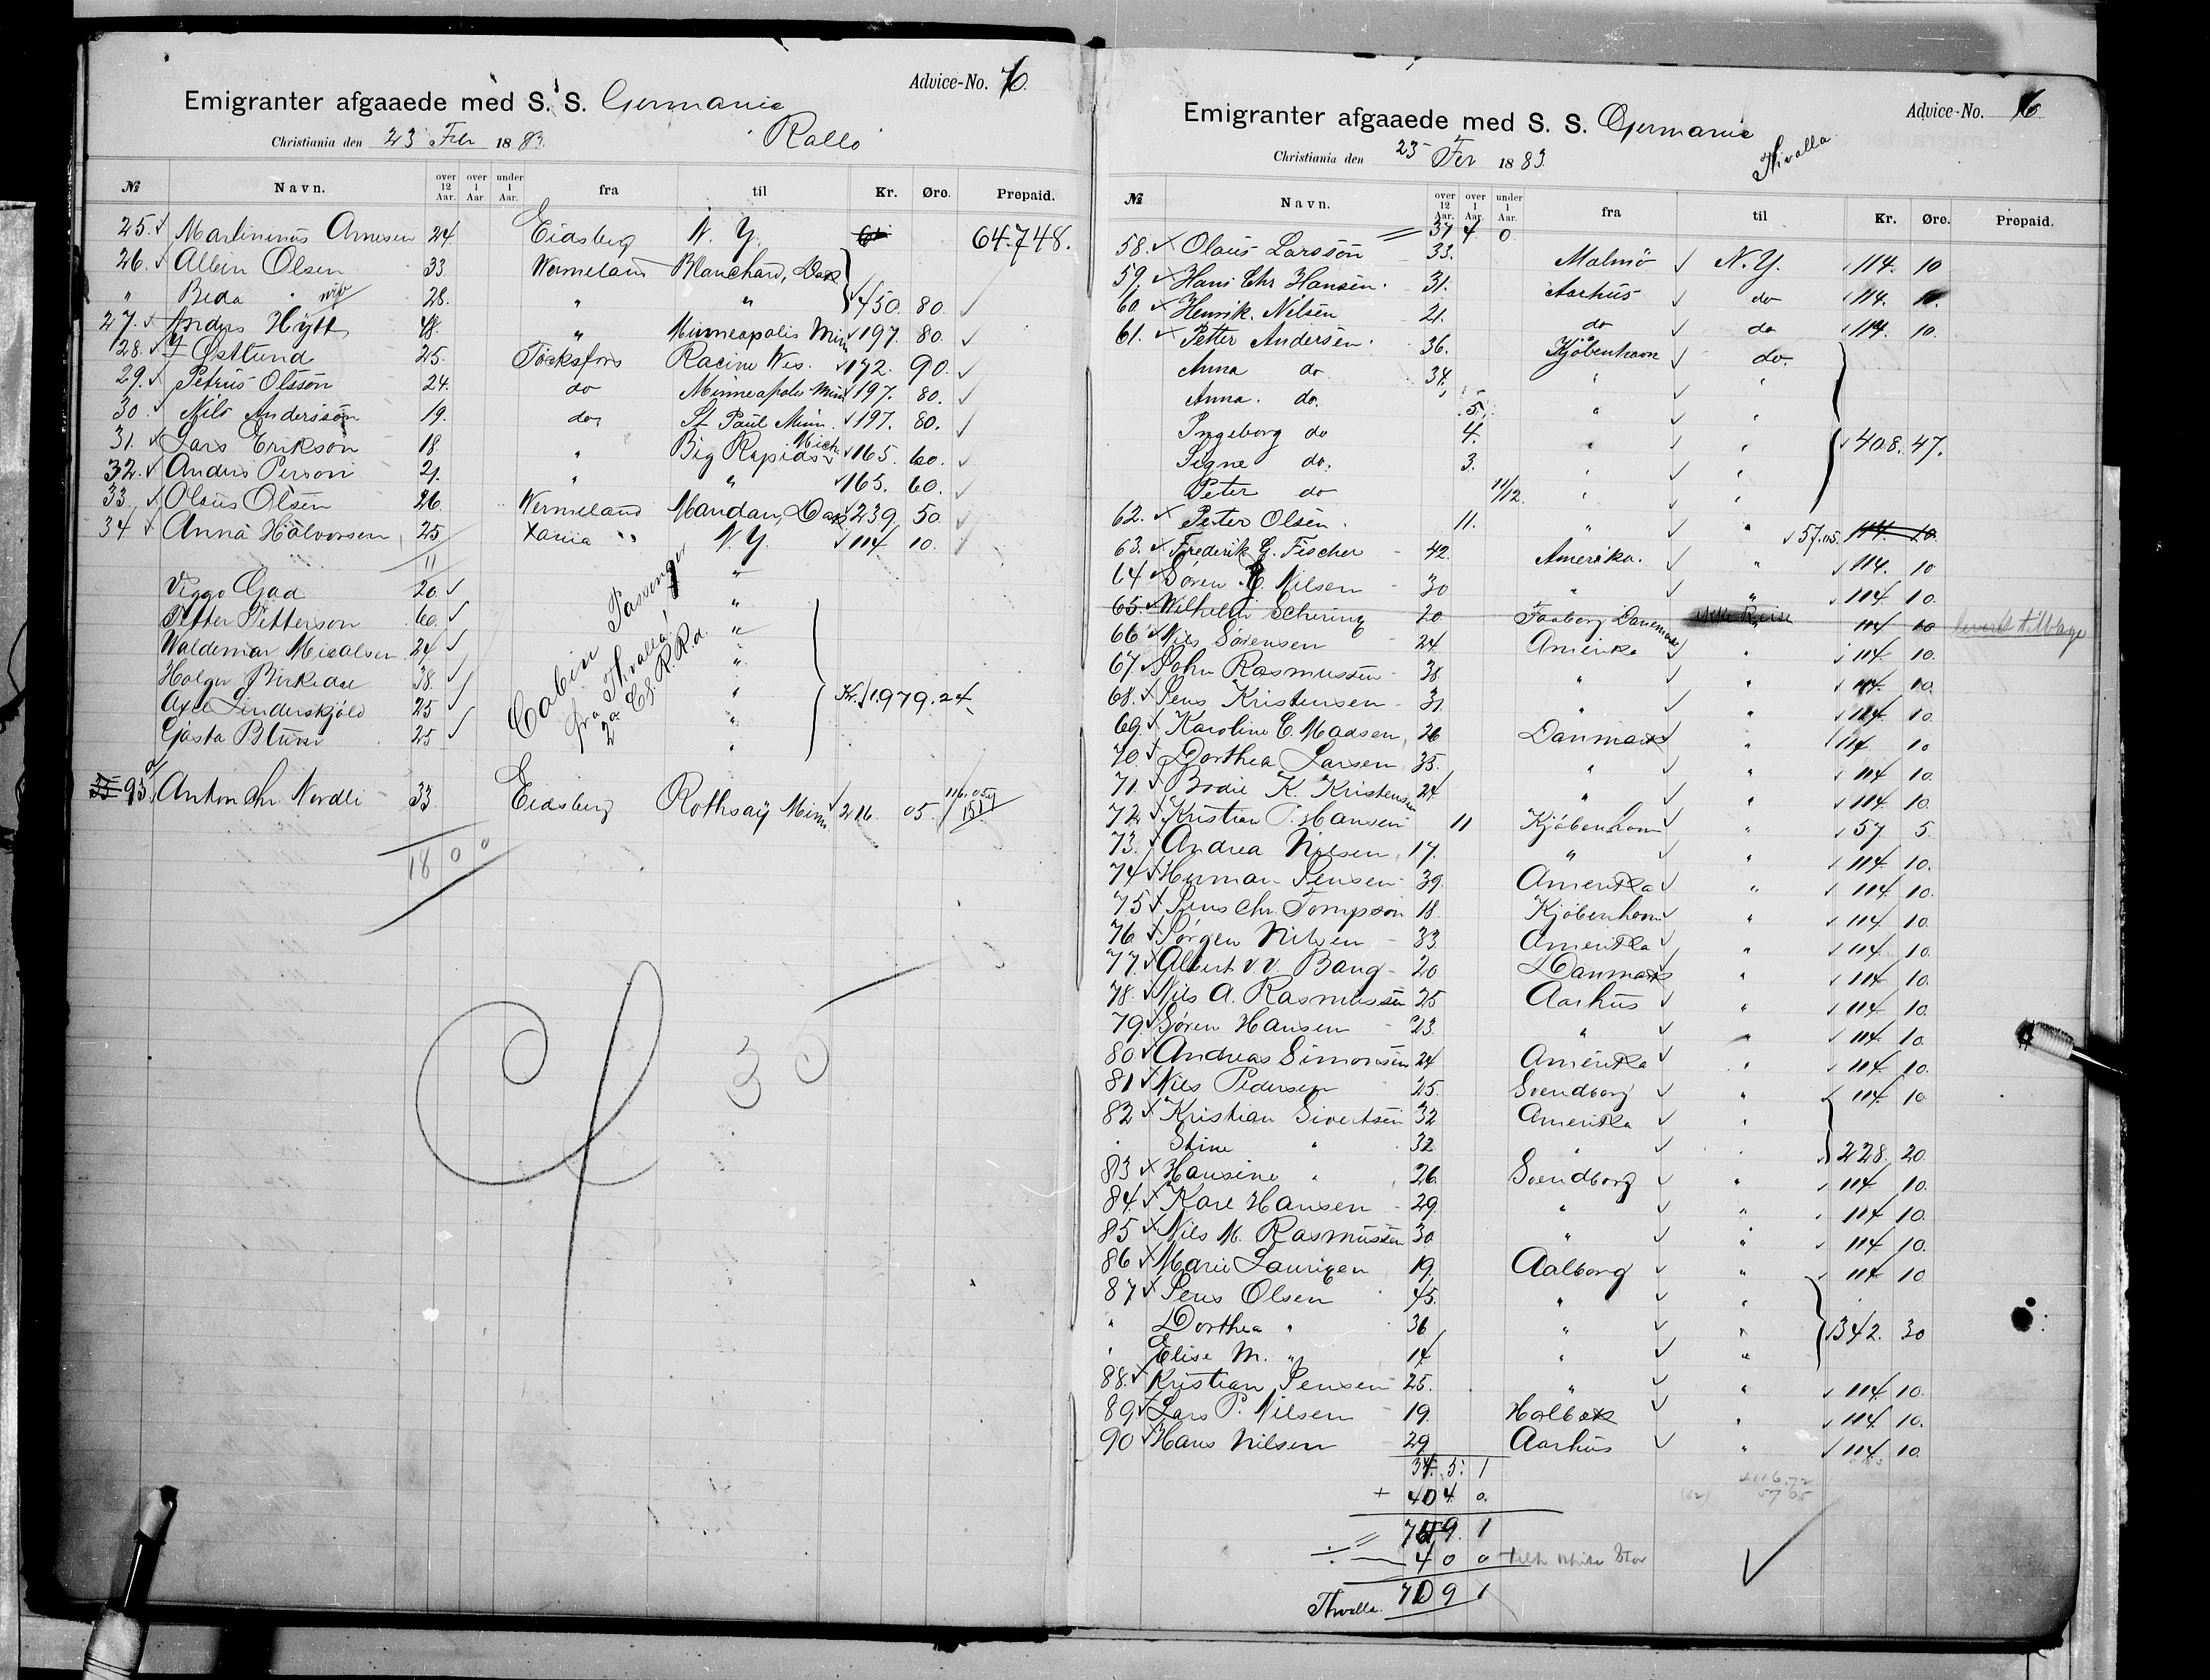 Advice-No. 6.
Emigranter afgaaede med S. S. Germania
Christiania den 23 Feb 1883. "Rallo"
№ Navn. over 12 Aar. over 1 Aar. under 1 Aar. fra til Kr. Øre. Prepaid.
25. Martinius Arnesen 24 Eidsberg N. Y. 64.748.
26. Albin Olsen 33 Wermeland Blanchard, Dak
" Beda " 28. " " 450. 80.
27. Anders Hytt 48. " Minneapolis Min 197. 80.
28. J Østlund 25. Töcksfors Racine Wis. 172. 90.
29. Petrus Olsson 24. do Minneapolis Min 197. 80.
30. Nils Andersson 19. do St Paul Minn. 197. 80.
31. Lars Erikson 18. " Big Rapids Mich 165. 60.
32. Anders Person 21. " " 165. 60.
33. Olaus Olsen 26. Wermeland Mandan, Dak 239. 50.
34 Anna Halvorsen 25 Xania N. Y. 114. 10.
11
Viggo Gad 20. "
Petter Petterson 60. "
Waldemar Micalsen 24 "
Holger Birkedal 38. "
Axel Linderskjöld 25 "
Gjøsta Blum 25 "
Cabin Passenger
fra Thvalla
Kr. 1979.24
35 93. Anton Chr. Nordli 33 Eidsberg Rothsay Minn. 216. 05.
18 0 0
Advice-No. 6
Emigranter afgaaede med S. S. Germania
Christiania den 23 Fer 1883. Thvalla
№ Navn. over 12 Aar. over 1 Aar. under 1 Aar. fra til Kr. Øre. Prepaid.
37 4 0
58. Olaus Larsson 33. Malmø N.Y. 114. 10
59. Hans Chr Hansen. 31. Aarhus do 114. 10.
60. Henrik Nilsen 21. do do 114. 10.
61. Petter Andersen. 36. Kjøbenhavn do.
Anna do 34. " "
Anna. do. 5. " "
Ingeborg do 4. " " 408. 47.
Signe do. 3. " "
Peter do 11/12. " "
62. Peter Olsen. 11. " " 57.05. 114. 10.
63. Frederik G. Fischer 42. Amerika. " 114. 10
64 Søren P. Nilsen 30 " " 114. 10.
65. Wilhelm Schering 20 Faaborg Danemark ikke Reise 114 10 leveret tilbage
66 Nils Sørensen 24 Amerika " 114. 10.
67 John Rasmussen 38 " " 114. 10.
68. Jens Kristensen 31 " " 114. 10.
69. Karoline C. Madsen 26 Danmark " 114 10
70. Dorthea Larsen 35. " " 114 10.
71. Bodil K. Kristensen 24 " " 114 10.
72. Kristian P. Hansen 11 Kjøbenhavn " 57 5.
73. Andrea Nilsen 17. " " 114 10.
74 Herman Jensen 39. Amerika " 114. 10.
75 Jens Chr Tompson 18 Kjøbenhavn " 114. 10.
76. Jørgen Nilsen 33 Amerika " 114. 10.
77. Albert v. v. Bang 20 Danmark " 114. 10.
78. Nils A. Rasmussen 25 Aarhus " 114 10.
79. Søren Hansen 23 " " 114 10.
80 Andreas Simonsen 24 Amerika " 114. 10.
81 Nils Pedersen 25. Svendborg " 114 10
82 Kristian Sivertsen 32 Amerika "
" Stine " 32 " " 228. 20.
83 Hansine " 26. Svendborg " 114 10.
84. Karl Hansen 29 " " 114 10.
85 Nils M. Rasmussen 30 " " 114 10.
86 Marie Lauritzen 19. Aalborg " 114 10
87 Jens Olsen 45. " "
" Dorthea " 36 " " 342. 30
" Elise M. " 14 " "
88. Kristian Jensen 25. " " 114 10.
89 Lars P. Nilsen 19. Holbæk " 114. 10.
90 Hans Nilsen 29 Aarhus " 114 10.
37. 5. 1
+ 40 4 0.
9. 1
4 0 0
Thvalla. 70 9 1